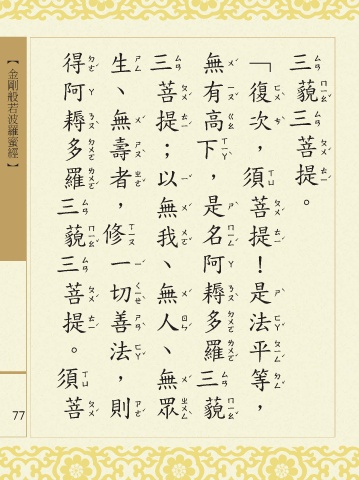 三藐三菩提。
「復次，須菩提！是法平等，
無有高下，是名阿耨多羅三藐
三菩提；以無我、無人、無眾
生、無壽者，修一切善法，則
得阿耨多羅三藐三菩提。須菩
【金剛般若波羅蜜經】
77